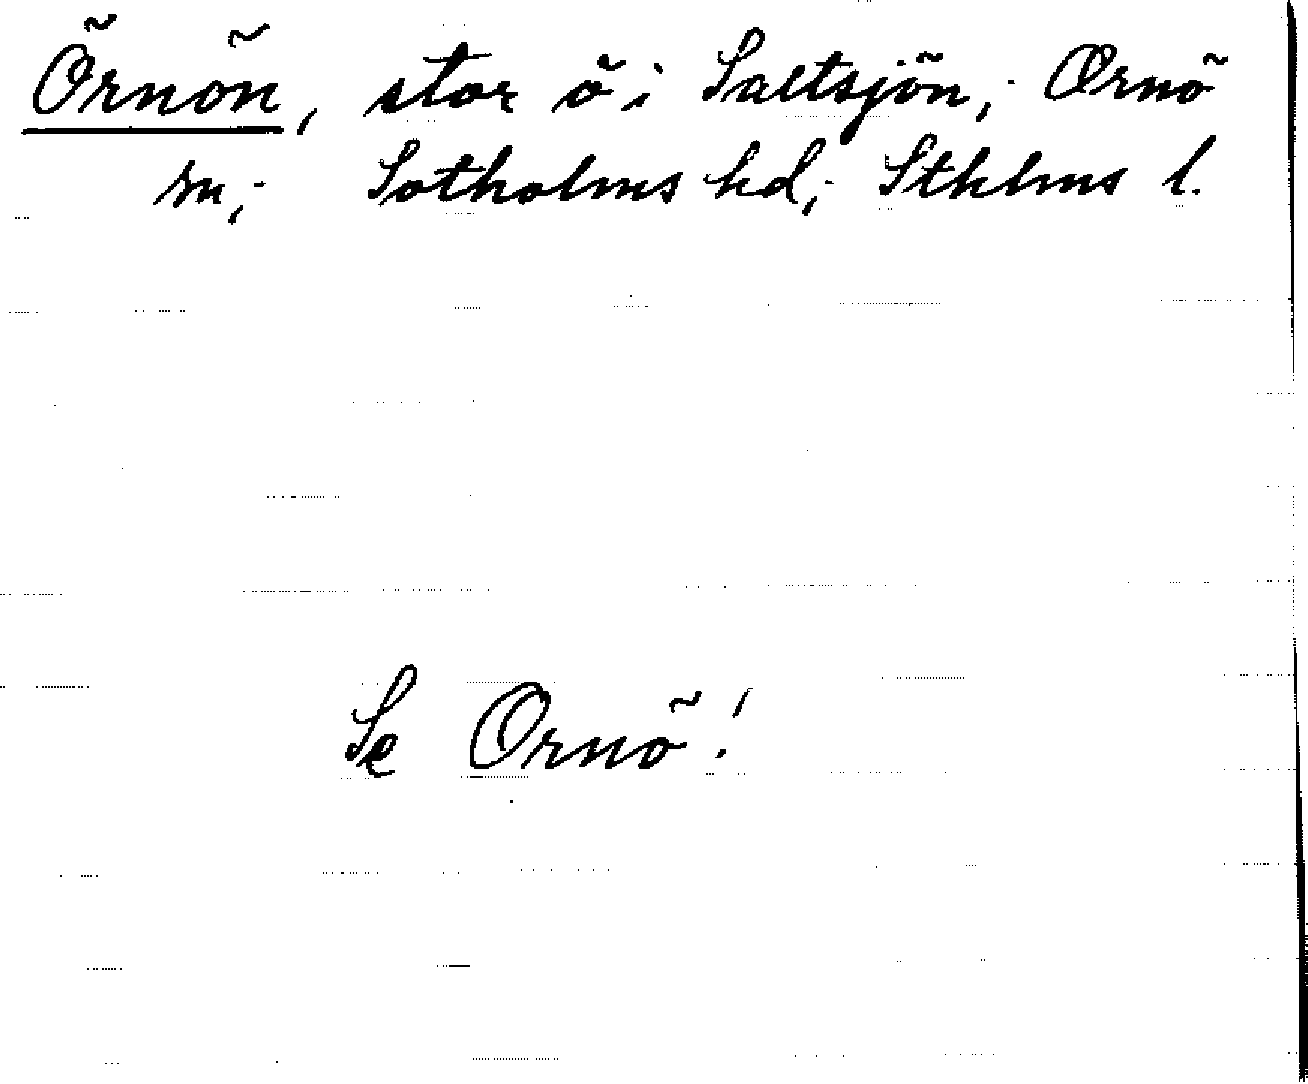 Örnön, stor ö i Saltsjön; Ornö
sn; Sotholms hd; Sthlms l.
Se Ornö!